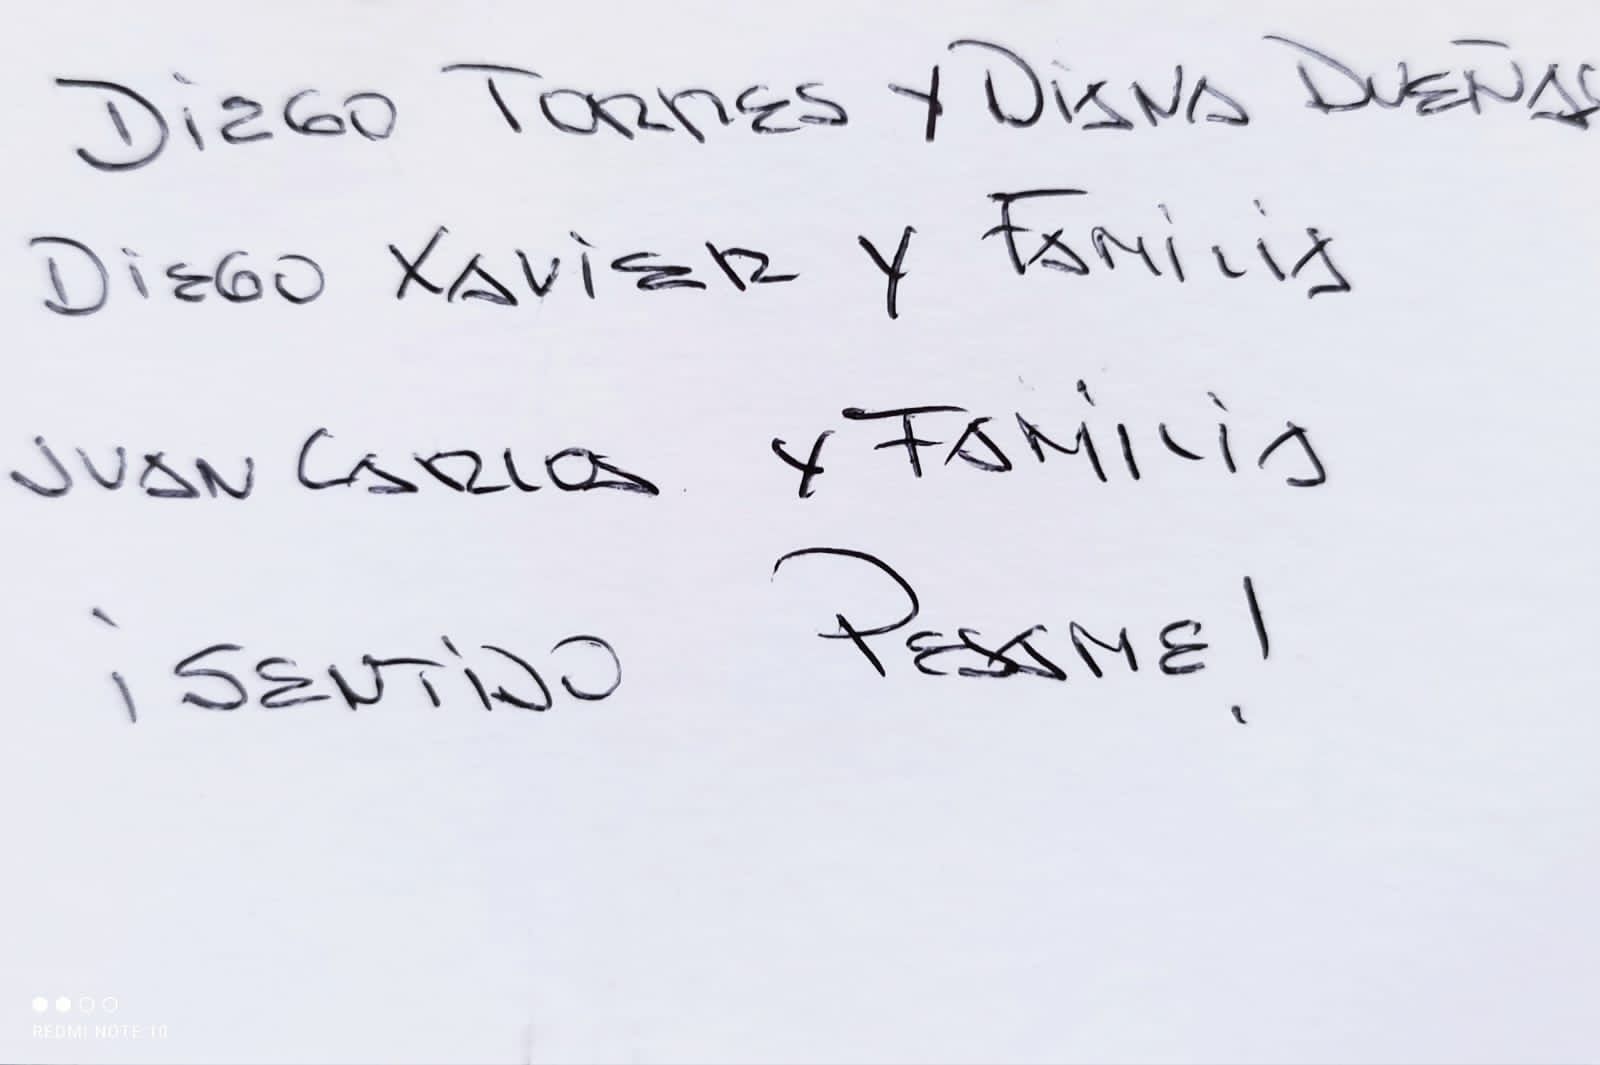 DiEGO TORRES Y DiANA DUEÑAS
DiEGO XAViER Y FAMiLiA
JUAN CARLOS Y FAMiLiA
¡SENTiDO PESAME!
REDMI NOTE 10